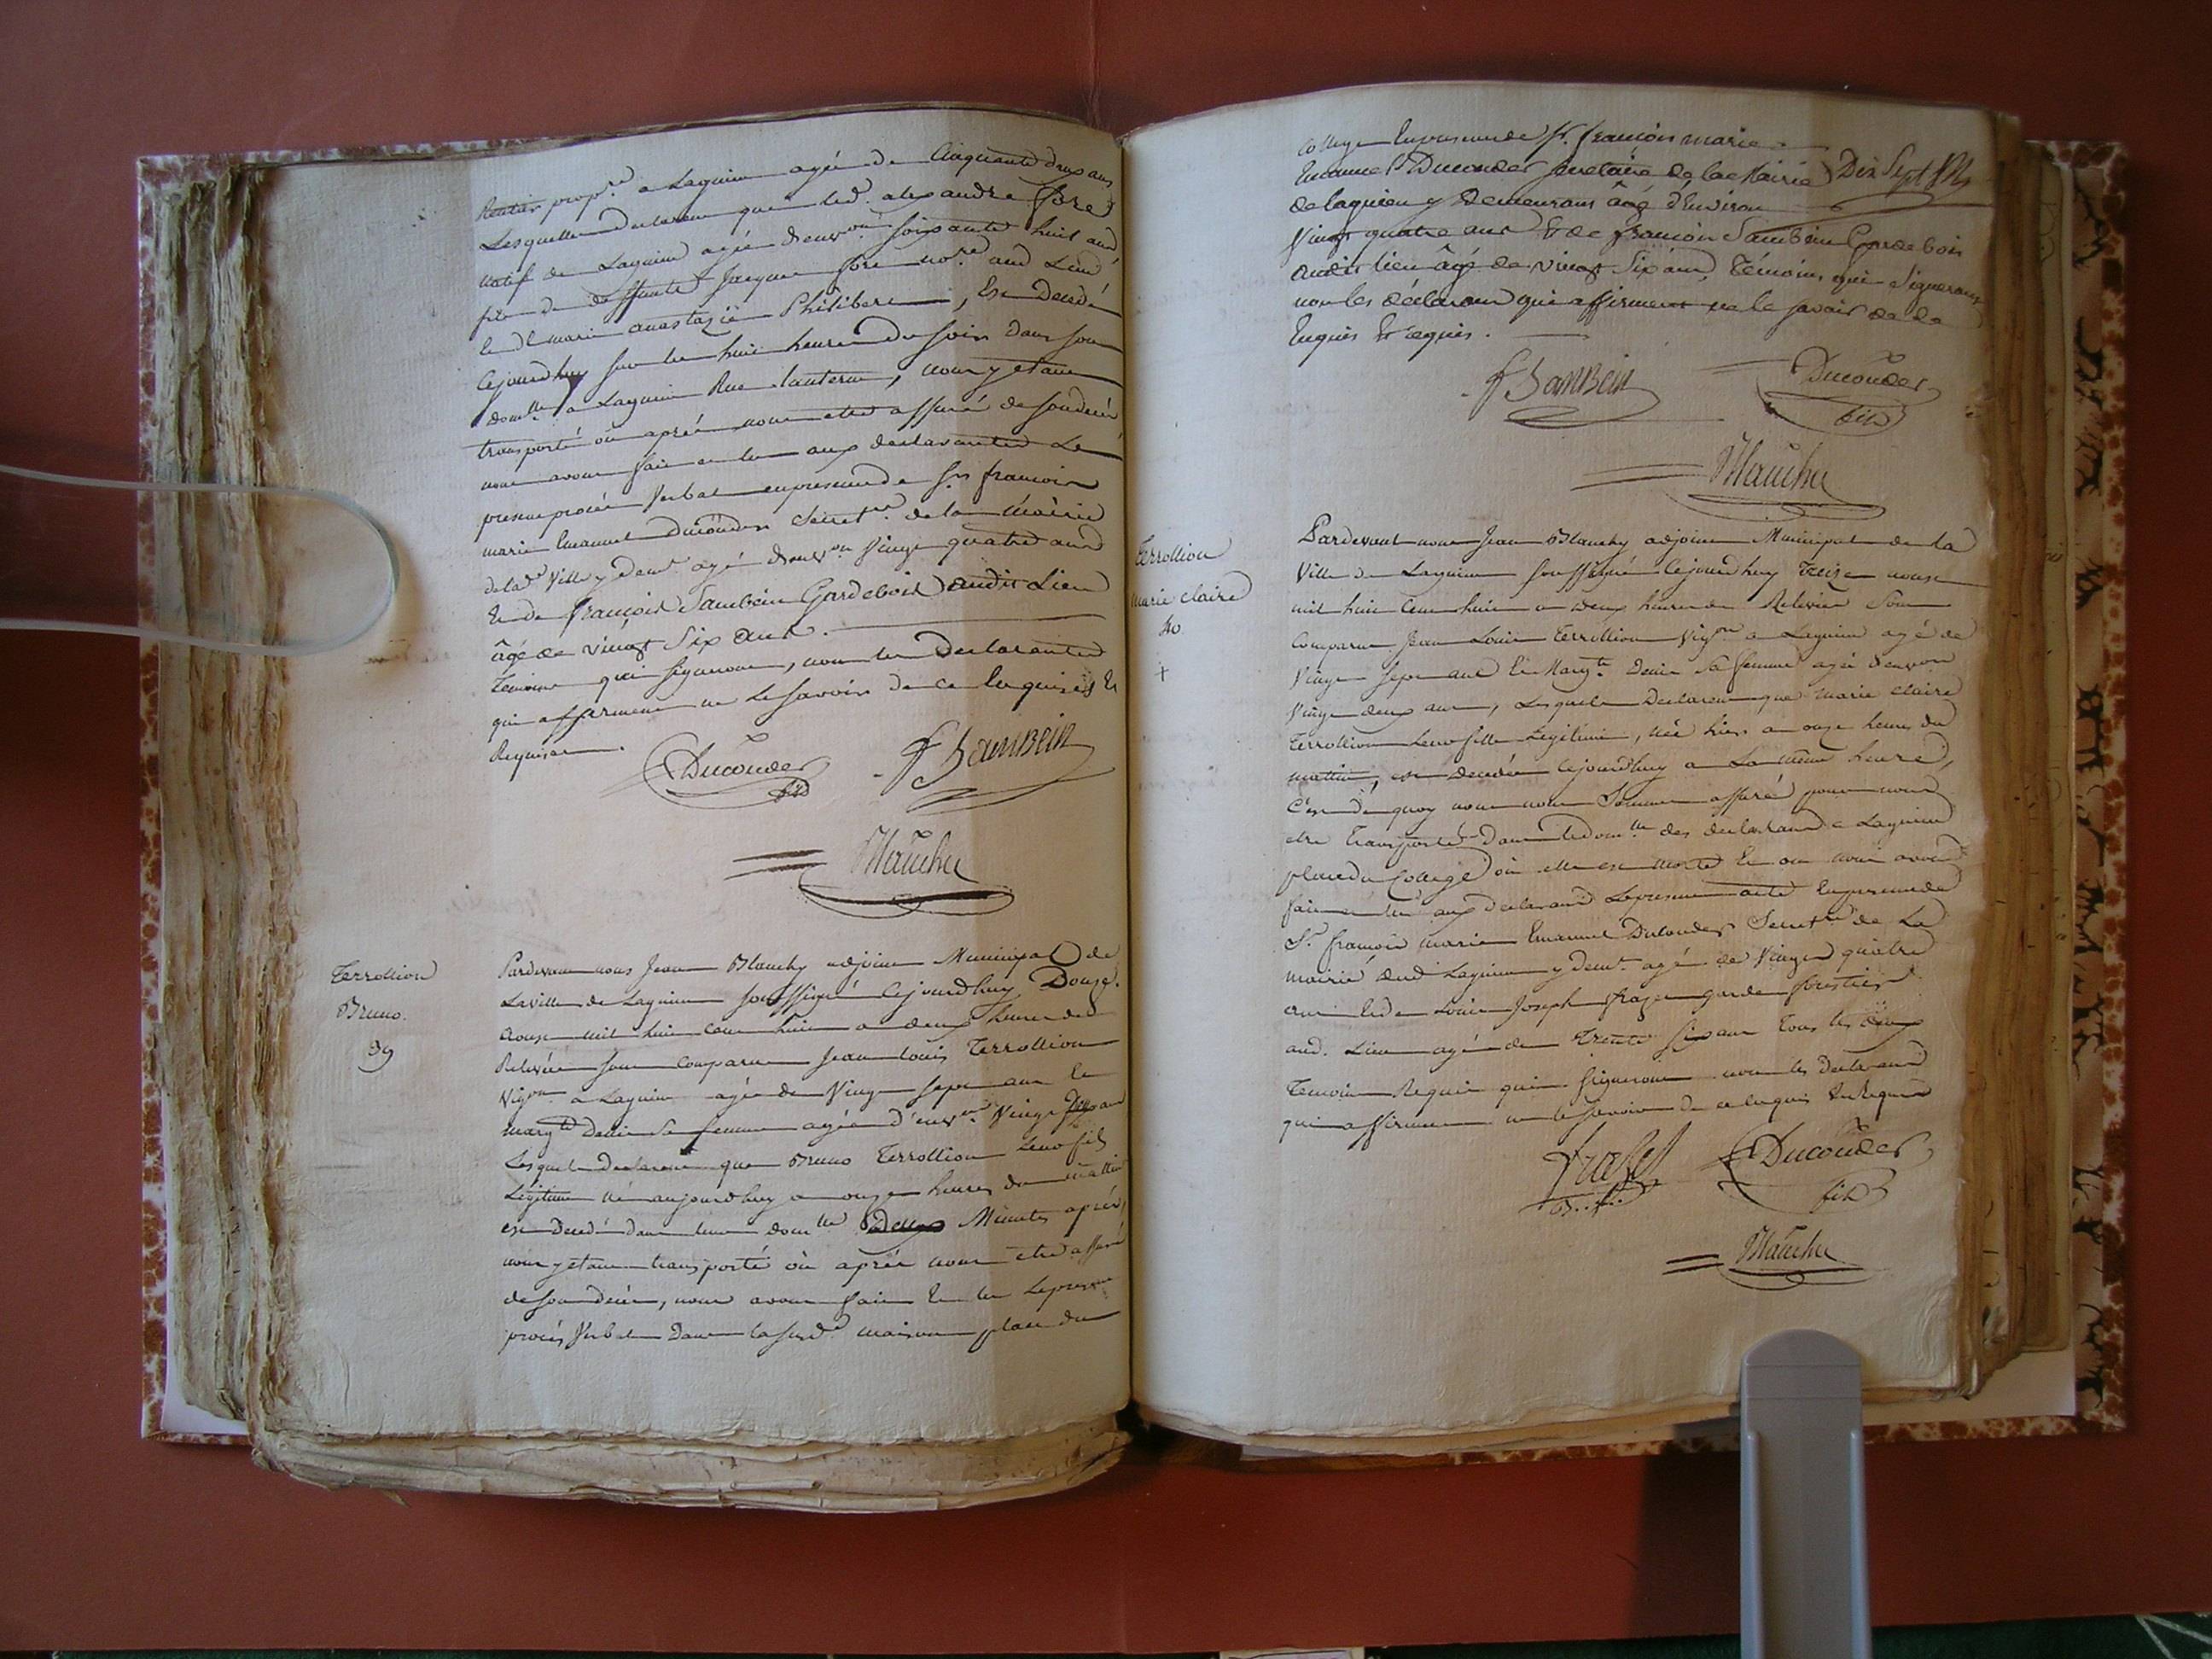 Rentier prop.re a Lagnieu agée de Cinquante deux ans
Lesquelles declarent que led. alexandre fore
natif de Lagnieu agée d'envon soixante huit ans
fils de deffunts Jacques fore no.re aud Lieu
le dl marie anastazie Philibert, Est decedé
cejourdhuy sur les huit heures du soir dans son
domlle a Lagnieu Rue lanterne, nous y etant
transporté où aprés nous etre assuré de son decés
nous avons fait et lu aux declarantes Le
present procés Verbal en presence de Srs francois
marie Emanuel Ducouder Secret.re de la Mairie
de lad.e Ville y dem.t agé d'env.on Vingt quatre ans
Et de françois Sambein Garde bois audit Lieu
âgé de vingt Six ans.
Temoins qui signeront, non les declarantes
qui affirment ne le savoir de ce Enquises Et
Requises.
Ducouder fils
F Sambein
Blanchy
Terrollion
Bruno.
39
Pardevant nous Jean Blanchy adjoint Municipal de
La ville de Lagnieu soussigné cejourdhuy Douze
aoust mil huit cent huit a deux heures de
Relevée sont comparus Jean Louis Terrollion
Vigon a Lagnieu agée de Vingt sept ans Et
margte Denis sa femme agée d'envn Vingt deux ans
Lesquels declarent que Bruno Terrollion leur fils
Légitime né aujourdhuy a onze heures du matin
est decedé dans leur domlle deux Minutes aprés,
nous y etant transporté où aprés nous etre assuré
de son decés, nous avons fait Et lu Le present
procés Verbal Dans la susd.e maison place du
College En presence de Sr. françois marie
Emanuel Ducouder Secretaire de la Mairie Dix Sept
de lagnieu y Demeurant âgé d'Environ
Vingt quatre ans Et de françois Sambein Garde bois
audit lieu âgé de vingt Six ans, Témoins qui Signeront
non les déclarans qui affirment ne le savoir de ce
Enquis Et requis.
F Sambein
Ducouder fils
Blanchy
Terrollion
marie claire
40
+
Pardevant nous Jean Blanchy adjoint Municipal de la
Ville de Lagnieu soussigné cejourdhuy Treize aoust
mil huit Cent huit a deux heures de Relevée Sont
Comparus Jean Louis Terrollion Vigon a Lagnieu agé de
Vingt sept ans Et Margte Denis Sa femme agée d'environ
Vingt deux ans, Lesquels Declarent que marie claire
Terrollion Leur fille Legitime, née hier a onze heures du
mattin, est decedée cejourdhuy a La même heure,
C'est de quoy nous nous Sommes assuré pour nous
etre Transporté Dans le domlle des declarans a Lagnieu
place du College où elle est morte Et ou nous avons
fait et lu aux declarans Le present acte En presence de
Sr. françois marie Emanuel Ducouder Secret.re de La
mairie dud Lagnieu y demt. agé de Vingt quatre
ans Et de Louis Joseph frazet garde forestier
aud. Lieu agé de Trente Six ans Tous les deux
Temoins Requis qui Signeront non les Declarans
qui affirment ne le savoir de ce Enquis Et Requis
Frazet
Ducouder fils
Blanchy